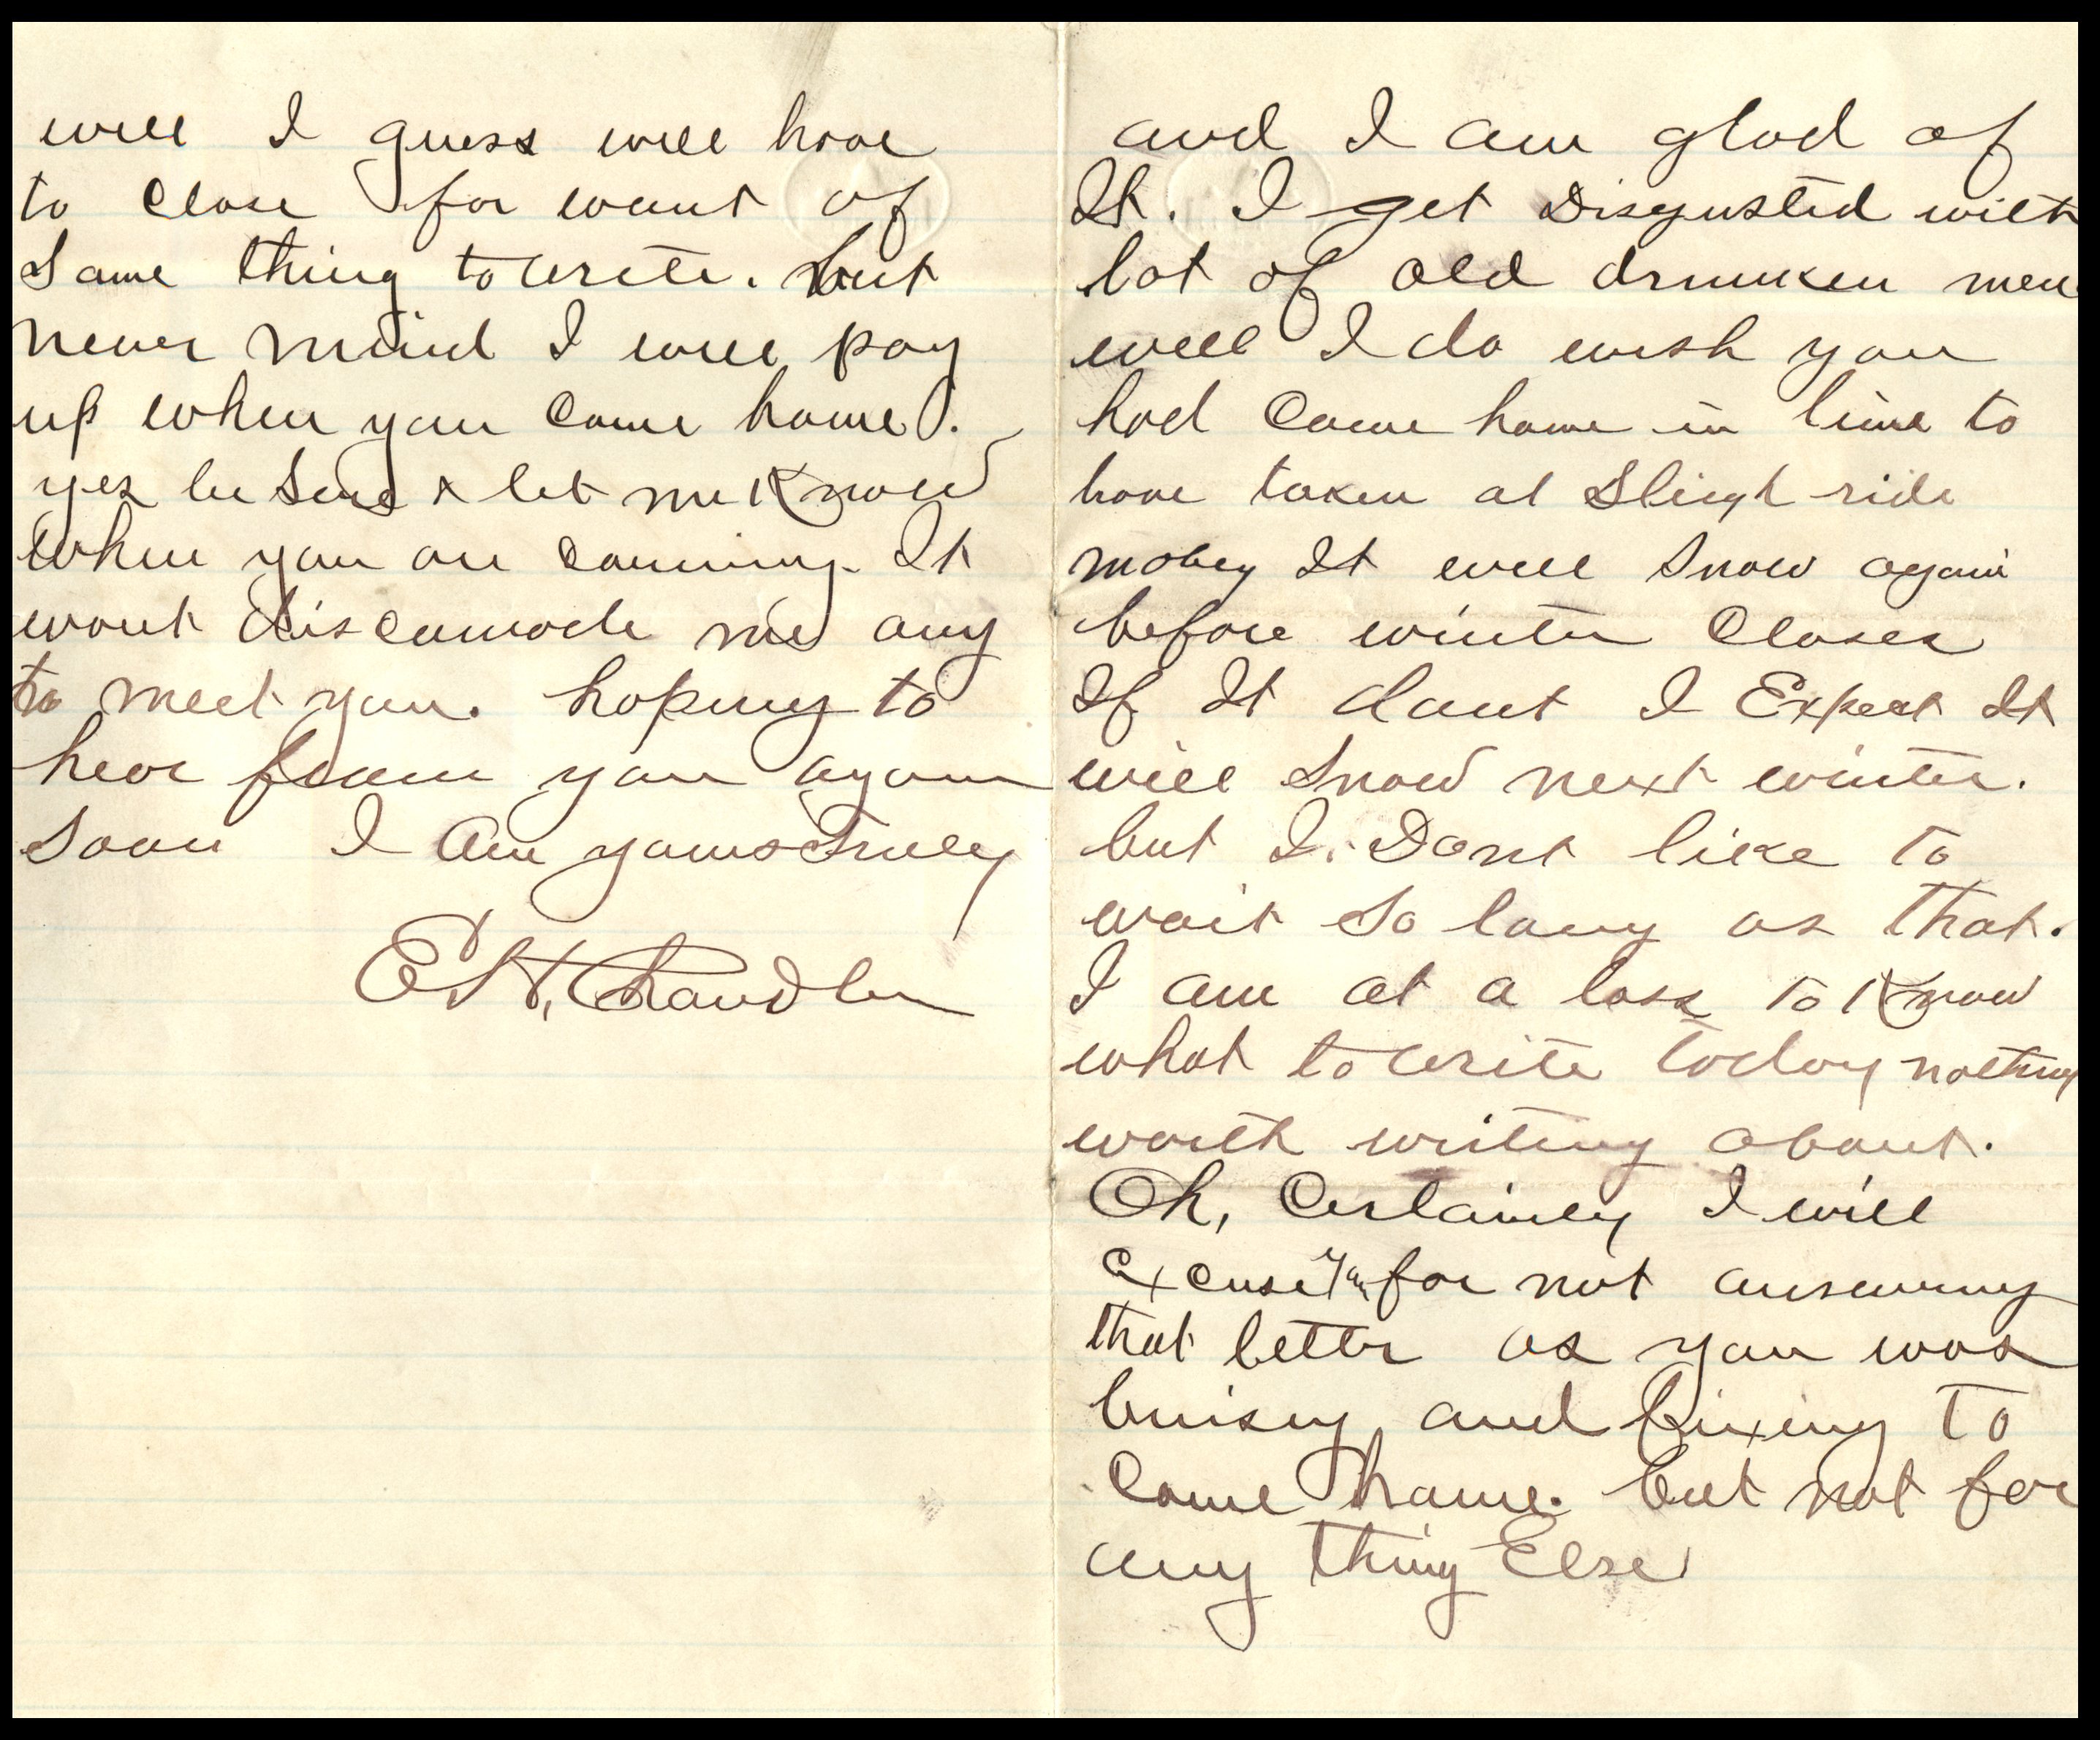 well I guess will have
to close for want of
Some thing to write. but
never mind I will pay
up when you come home.
yes be Sure & let me Know
when you are comming. It
wont discomode me any
to meet you. hoping to
hear from you again
Soon I Am yours Truly
E. H. Chandler
and I am glad of
It. I get Disgusted with
lot of old drunken men
well I do wish you
had Come home in time to
have taken at Sleigh ride
mabey It will Snow again
before winter Closes
If It dont I Expect It
will Snow next winter.
but I. Dont like to
wait So long as that.
I am at a loss to Know
what to write today nothing
worth writing about.
Oh, Certainley I will
excuse you for not answering
that letter as you was
buisy and fixing to
Come home. but not for
any thing Else